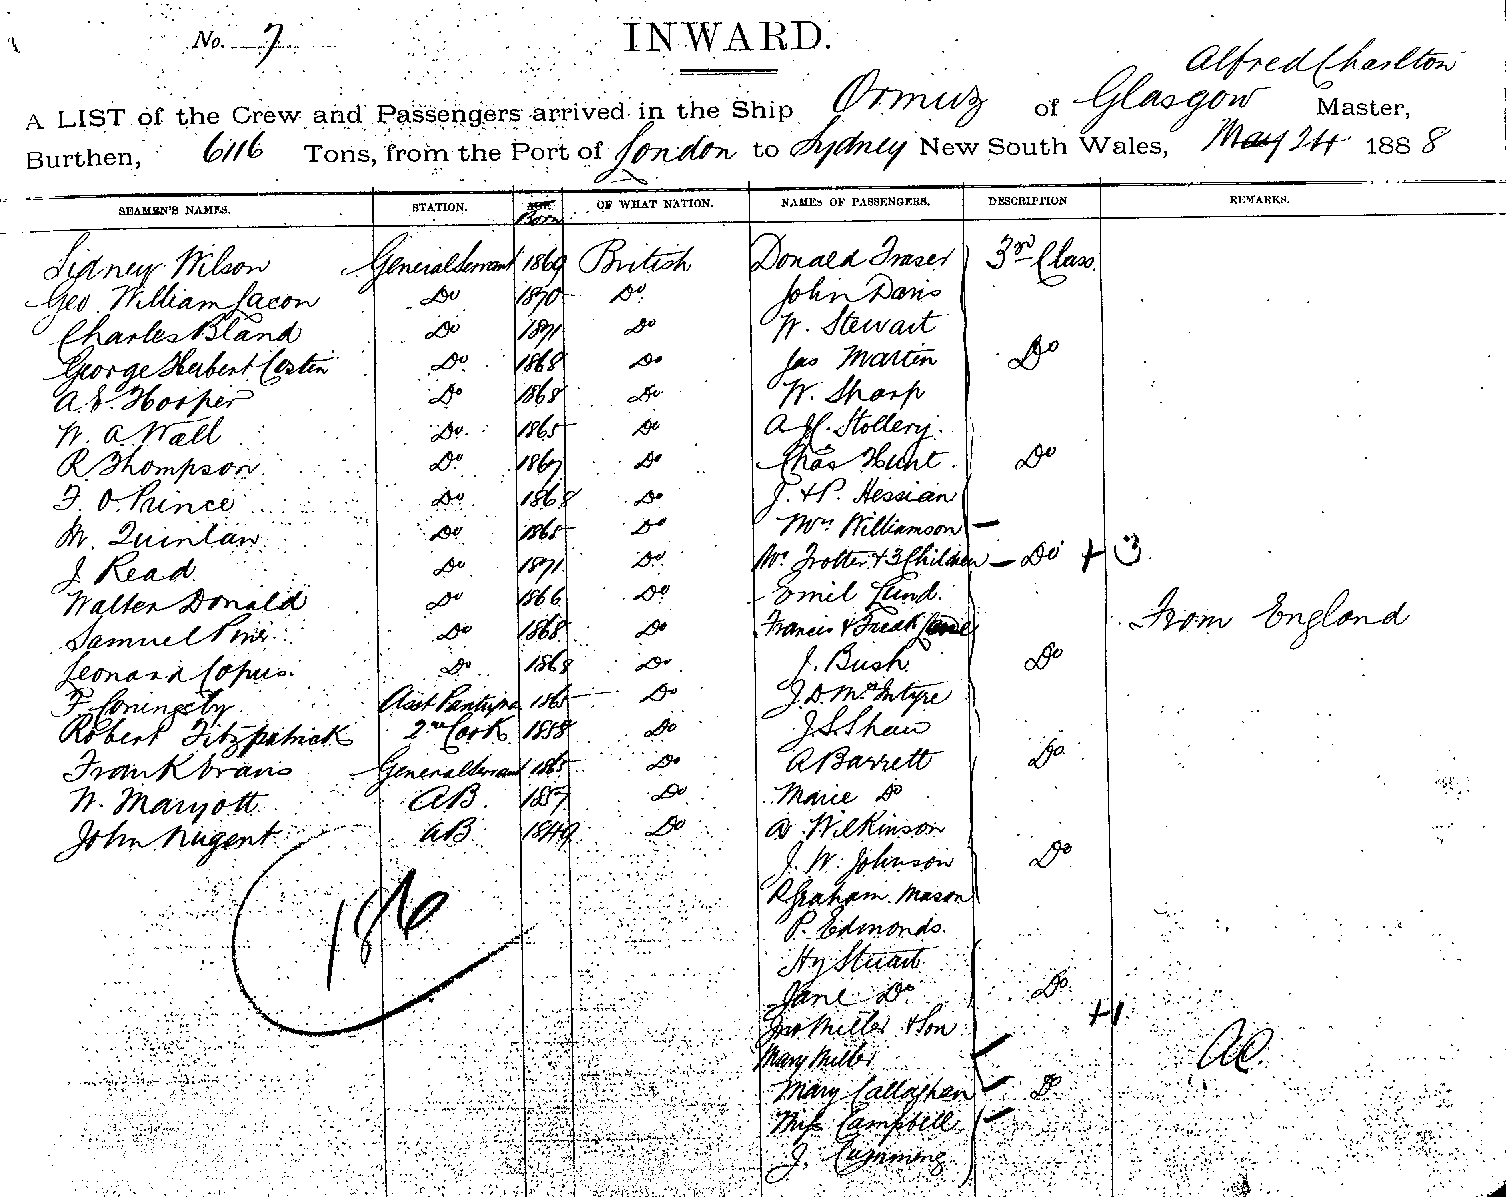 No. 7
INWARD.
Alfred Charlton
A LIST of the Crew and Passengers arrived in the Ship Ormuz of Glasgow Master,
Burthen, 6116 Tons, from the Port of London to Sydney New South Wales, May 24 1888
SEAMEN'S NAMES. STATION. AGE Born OF WHAT NATION. NAMES OF PASSENGERS. DESCRIPTION REMARKS.
Sidney Wilson General Servant 1869 British Donald Fraser 3rd Class.
Geo. William Lacon Do 1870 Do John Davis
Charles Bland Do 1871 Do W. Stewart
George Herbert Costin Do 1868 Do Jas Martin Do
A. E. Hooper Do 1868 Do W. Sharp
W. A. Wall Do 1865 Do A. H. Stollery
R. Thompson Do 1867 Do Chas Hunt Do
F. O. Prince Do 1868 Do J. & P. Hessian
M. Quinlan Do 1865 Do Mrs Williamson –
J. Read Do 1871 Do Mrs Trotter & 3 Children – Do + 3
Walter Donald Do 1866 Do Emil Lund From England
Samuel Do 1868 Do Francis &
Leonard Copus Do 1868 Do J. Bush Do
F. Coningsby Asst Pantryman 1865 Do J. D. McIntyre
Robert Fitzpatrick 2nd Cook 1858 Do J. S. Shaw
Frank Evans General Servant 1865 Do A Barrett Do
W. Maryott AB. 1857 Do Marie Do
John Nugent AB 1849 Do A. Wilkinson
J. W. Johnson Do
R Graham Mason
186
P. Edmonds
Hy Stuart
Jane Do Do
Jno Miller & Son +1
Mary Miller AC.
Mary Callaghan Do
Miss Campbell
J. Cumming